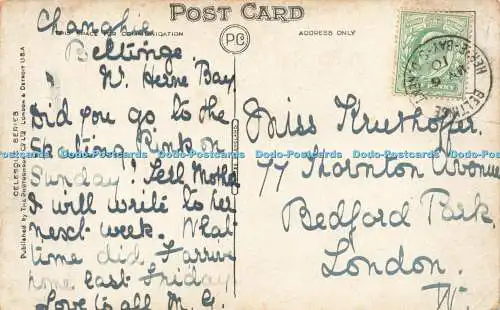 POST CARD
THIS SPACE FOR COMMUNICATION
PC
ADDRESS ONLY
Beltinge
Nr Herne Bay
Did you go to the
Skating Rink on
Sunday? Tell Mother
I will write to her
next week. What
time did F arrive
home last Friday
Love to all M. G.
Miss
77 Thornton Avenue
Bedford Park
London.
W.
CELESQUE SERIES
Published by The Photochrom Co Ltd London & Detroit U.S.A.
BELTINGE
HERNE-BAY
MY 6
10
Dodo-Postcards Dodo-Postcards Dodo-Postcards Dodo-Postcards Dodo-Postcards